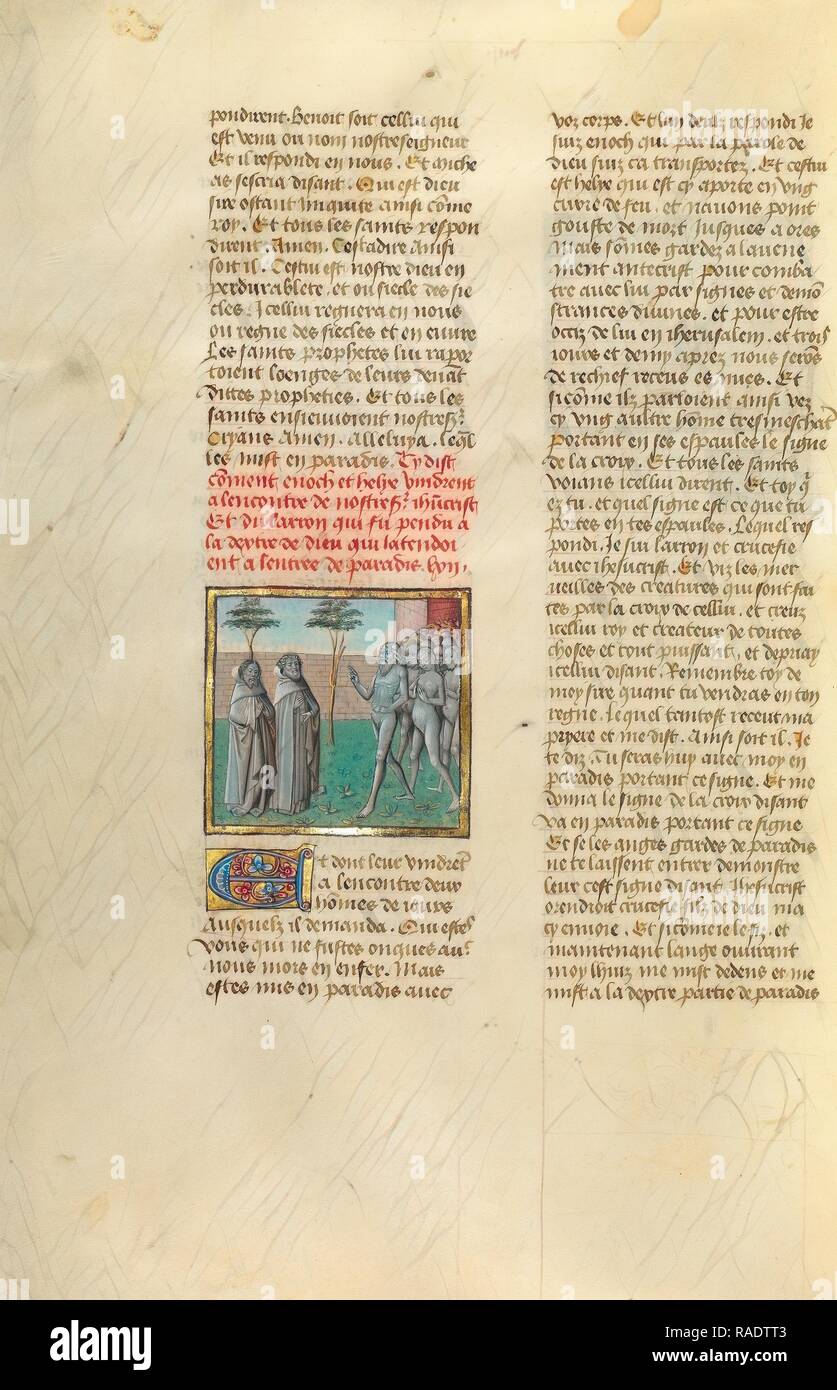 pondirent. Benoit soit cellui qui
est venu ou nom nostreseigneur
Et il respondi en nous. Et miche
as sescria disant. Qui est dieu
sire ostant iniquite ainsi cōme
roy. Et tous les saints respon
dirent. Amen. Cestadire ainsi
soit il. Cestui est nostre dieu en
perdurablete. et ou siecle des sie
cles. Icellui regnera en nous
ou regne des siecles et en
Les saints prophetes lui rapor
toient loenges de leurs deuāt
dittes propheties. Et tous les
saints ensieuuoient nostresr.
Cryans Amen. Alleluya. Leql
les mist en paradis. Cy dist
cōment enoch et helye vindrent
a lencontre de nostresr. ihūcrist
Et du larron qui fu pendu a
la dextre de dieu qui latendoi
ent a lentree de paradis. lvii.
Et dont leur vindrēt
a lencontre deux
hōmes de iours
Ausquelz il demanda. Qui estes
vous qui ne fustes onques auec
nous mors en enfer. Mais
estes mis en paradis auec
voz corps. Et lun deulz respondi Je
suiz enoch qui par la parole de
dieu suiz ca transportez. Et cestui
est helye qui est cy aporte en vng
curre de feu. et nauons point
gouste de mort Jusques a ores
Mais sōmes gardez a lauene
ment antecrist pour comba
tre avec lui par signes et demō
strances diuines. et pour estre
occiz de lui en iherusalem. et trois
iours et demy aprez nous serōs
de rechief receus es nues. Et
sicōme ilz parloient ainsi vez
cy vng aultre hōme tresmeschāt
portant en ses espaules le signe
de la croix. Et tous les saints
voians icellui dirent. Et toy q
es tu. et quel signe est ce que tu
portes en tes espaules. Lequel res
pondi. Je sui larron et crucefie
avec ihesucrist. Et viz les mer
ueilles des creatures qui sont fai
tes par la croix de cellui. et creuz
icellui roy et createur de toutes
choses et tout puissant. et depriay
icellui disant. Remembre toy de
moy sire quant tu vendras en ton
regne. Lequel tantost receut ma
pryere et me dist. Ainsi soit il. Je
te diz. Tu seras huy avec moy en
paradis portant ce signe. Et me
donna le signe de la croix disant
va en paradis portant ce signe
Et se les anges gardes de paradis
ne te laissent entrer demonstre
leur cest signe disant. Ihesucrist
orendroit crucefie filz de dieu ma
cy enuoie. Et sicōme ie le fiz. et
maintenant lange ouurant
moy lhuiz me mist dedens et me
mist a la dextre partie de paradis
alamy
alamy
Image ID: RADTT3
www.alamy.com